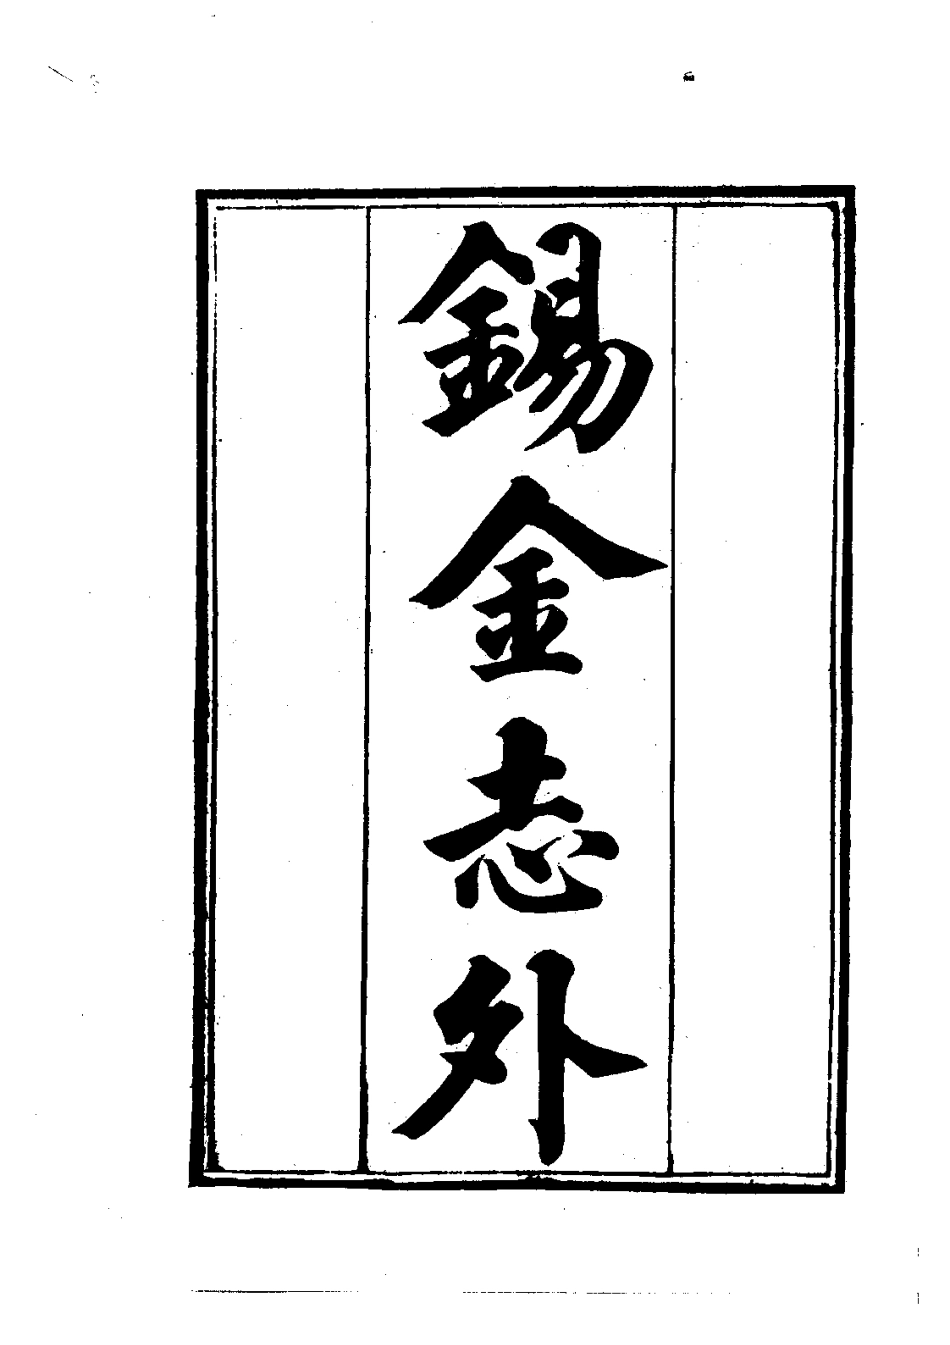 錫金志外